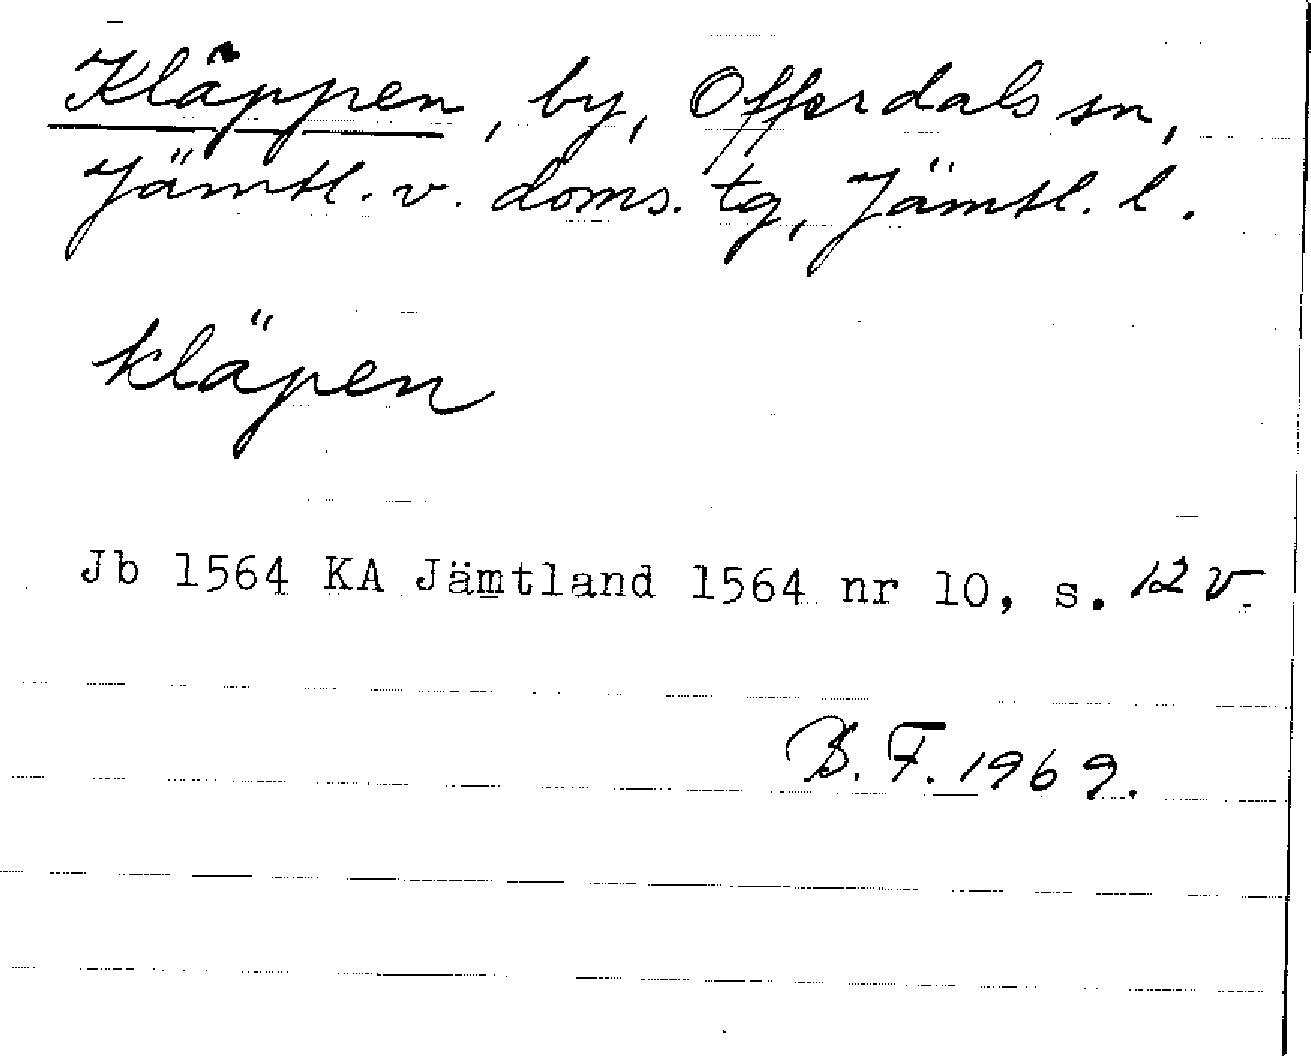 Kläppen, by, Offerdals sn,
Jämtl. v. doms. tg, Jämtl. l.
kläpen
Jb 1564 KA Jämtland 1564 nr 10, s. 12 v
B. F. 1969.